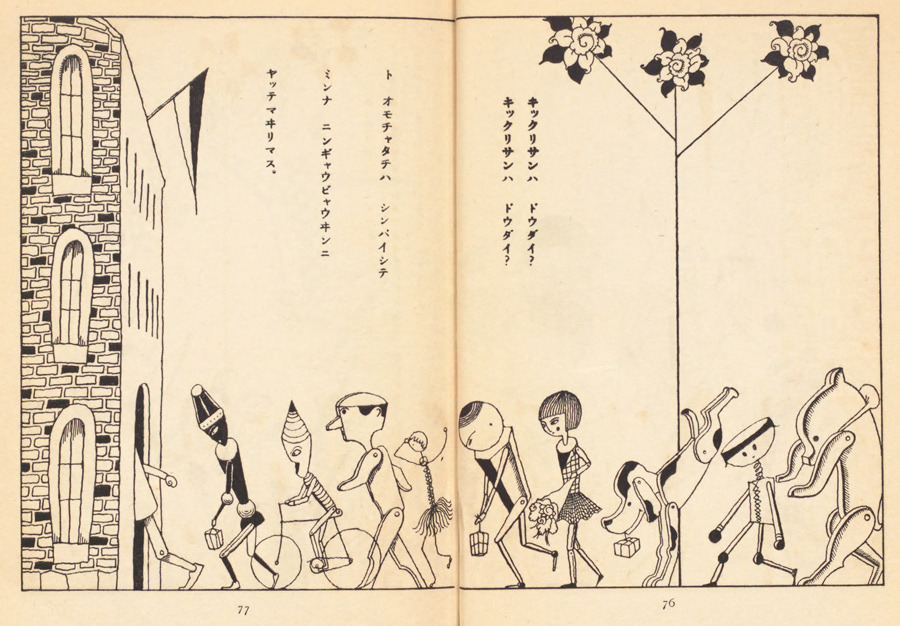 キックリサンハ ドウダイ?
キックリサンハ ドウダイ?
ト オモチャタチハ シンパイシテ
ミンナ ニンギャウビャウヰンニ
ヤッテマヰリマス。
76
77